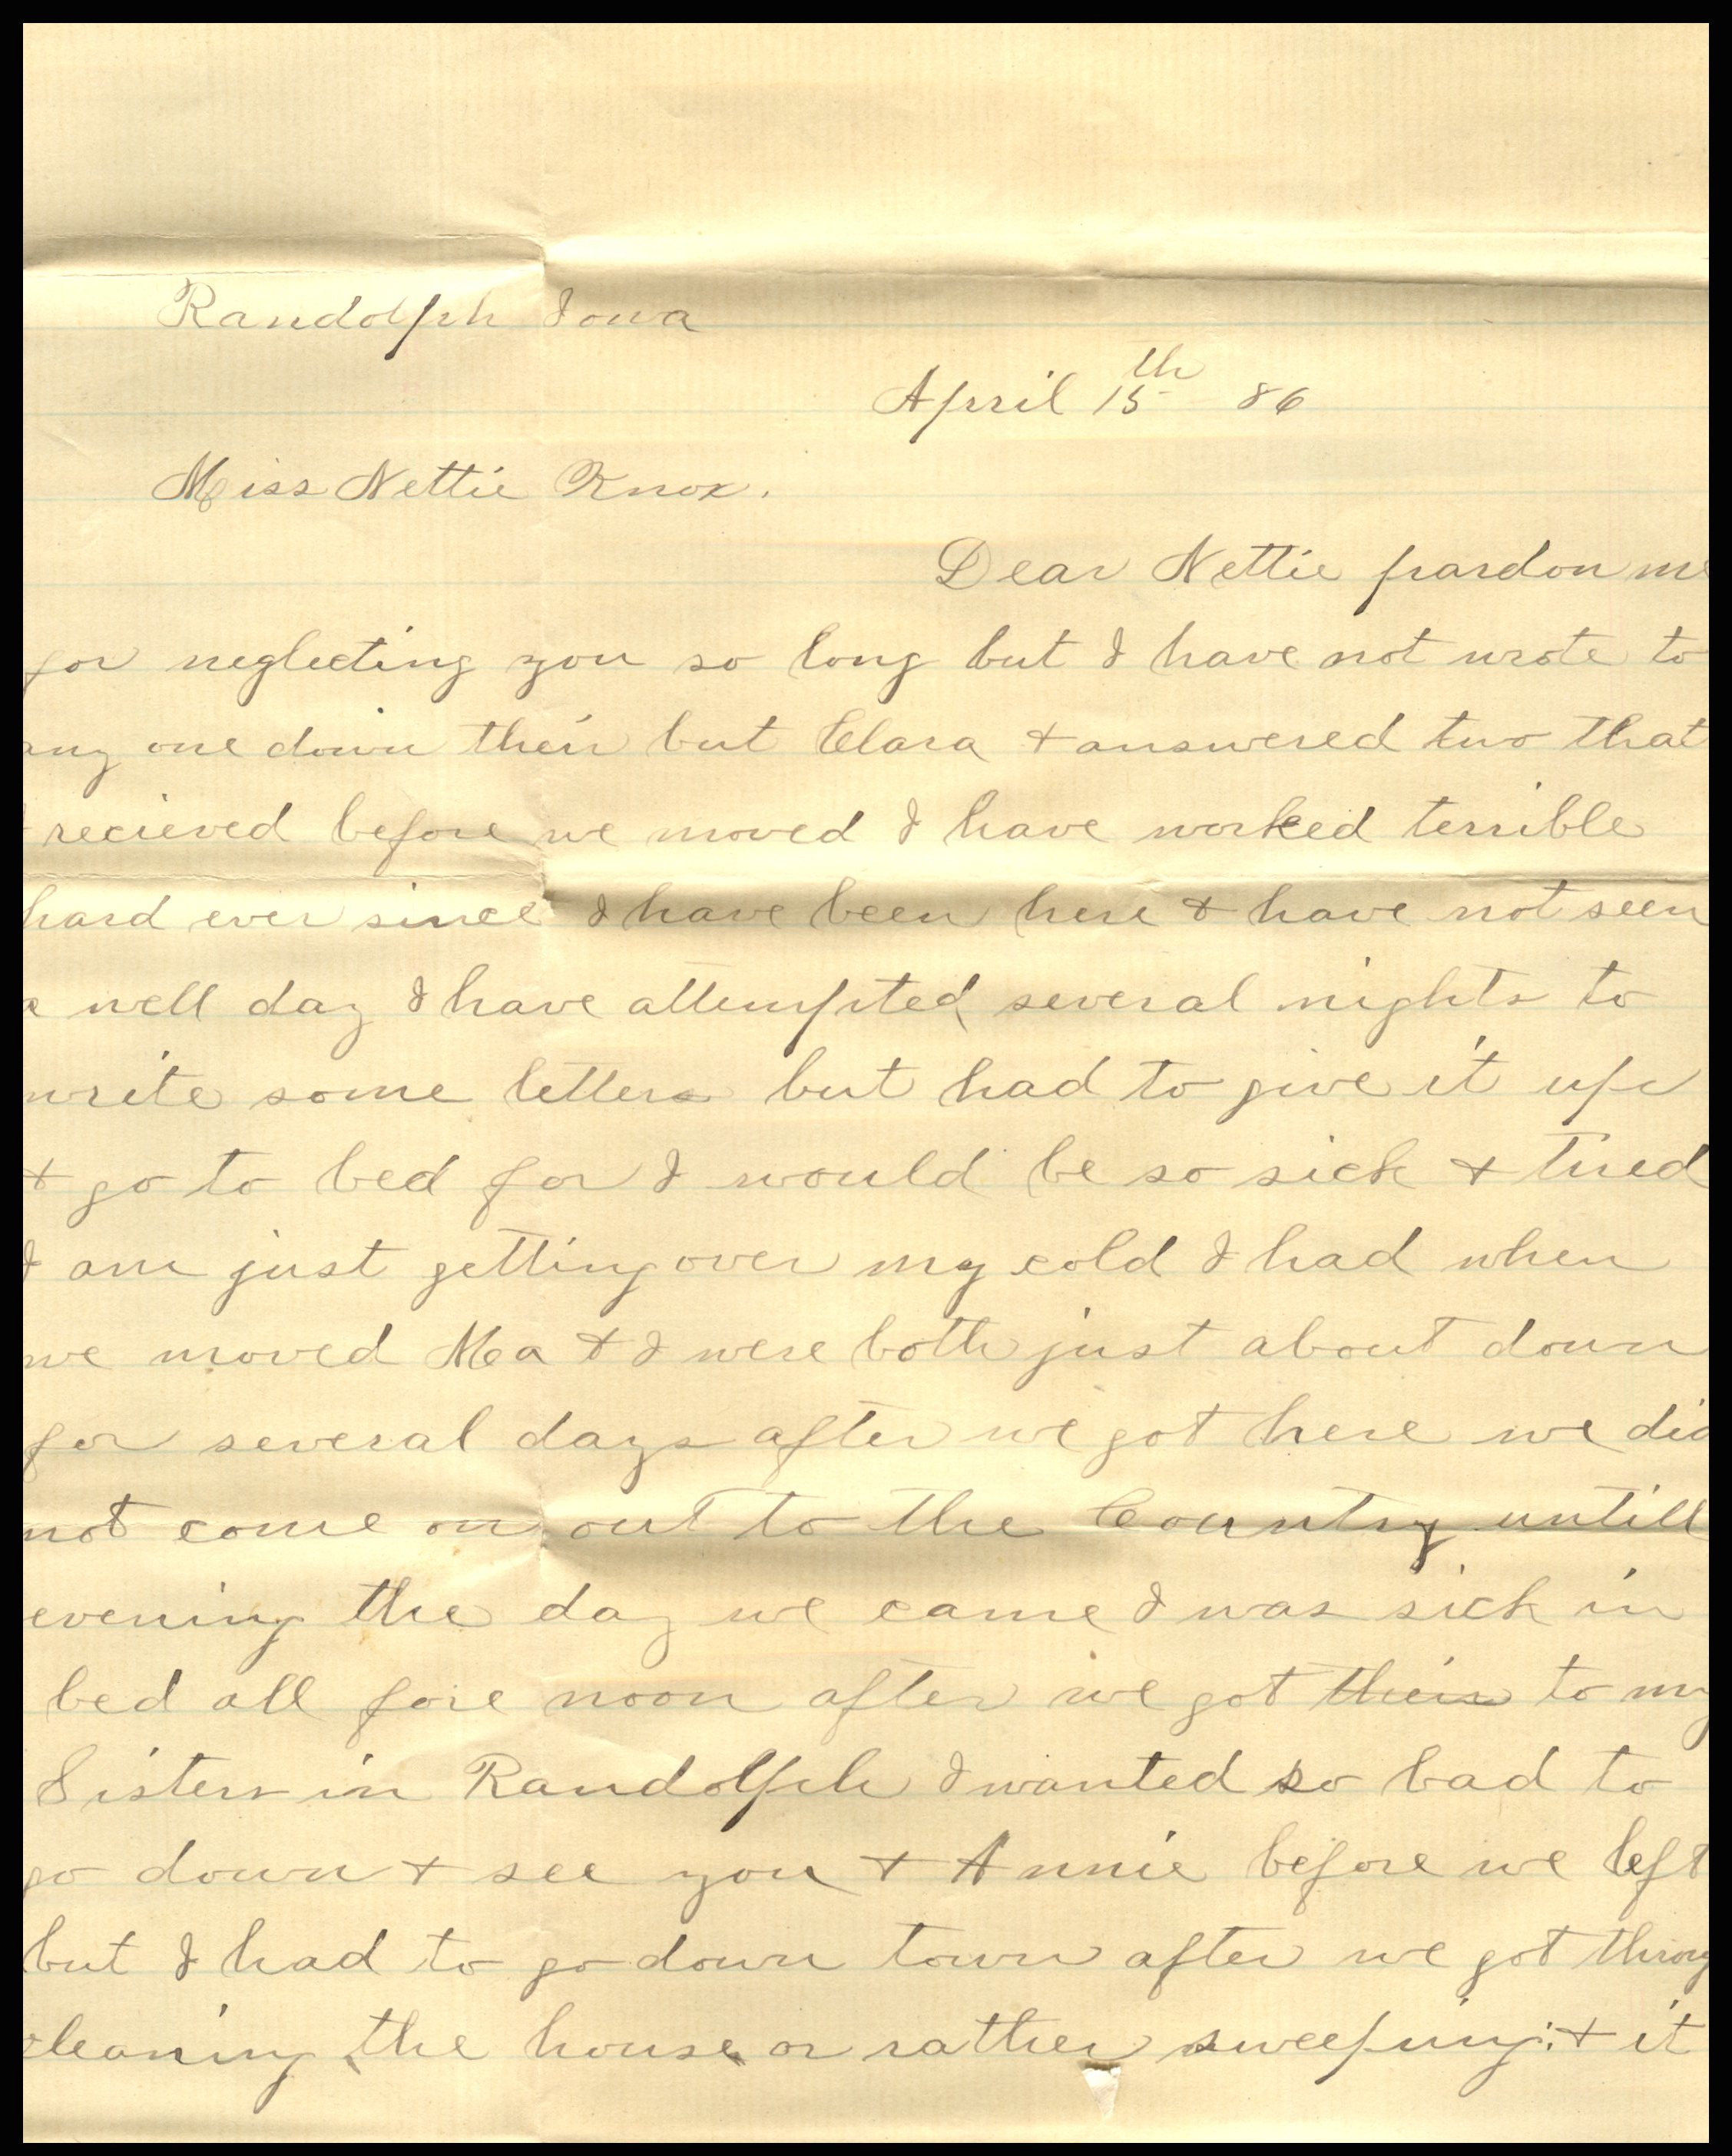 Randolph Iowa
April 15th 86
Miss Nettie Knox.
Dear Nettie pardon me
for neglecting you so long but I have not wrote to
any one down their but Clara + answered two that
recieved before we moved I have worked terrible
hard ever since I have been here + have not seen
a well day I have attempted several nights to
write some letters but had to give it up
+ go to bed for I would be so sick + tired
I am just getting over my cold I had when
we moved Ma + I were both just about down
for several days after we got here we did
not come on out to the Country untill
evening the day we came I was sick in
bed all fore noon after we got their to my
Sisters in Randolph I wanted so bad to
go down + see you + Annie before we left
but I had to go down town after we got throug
cleaning the house or rather sweeping: + it